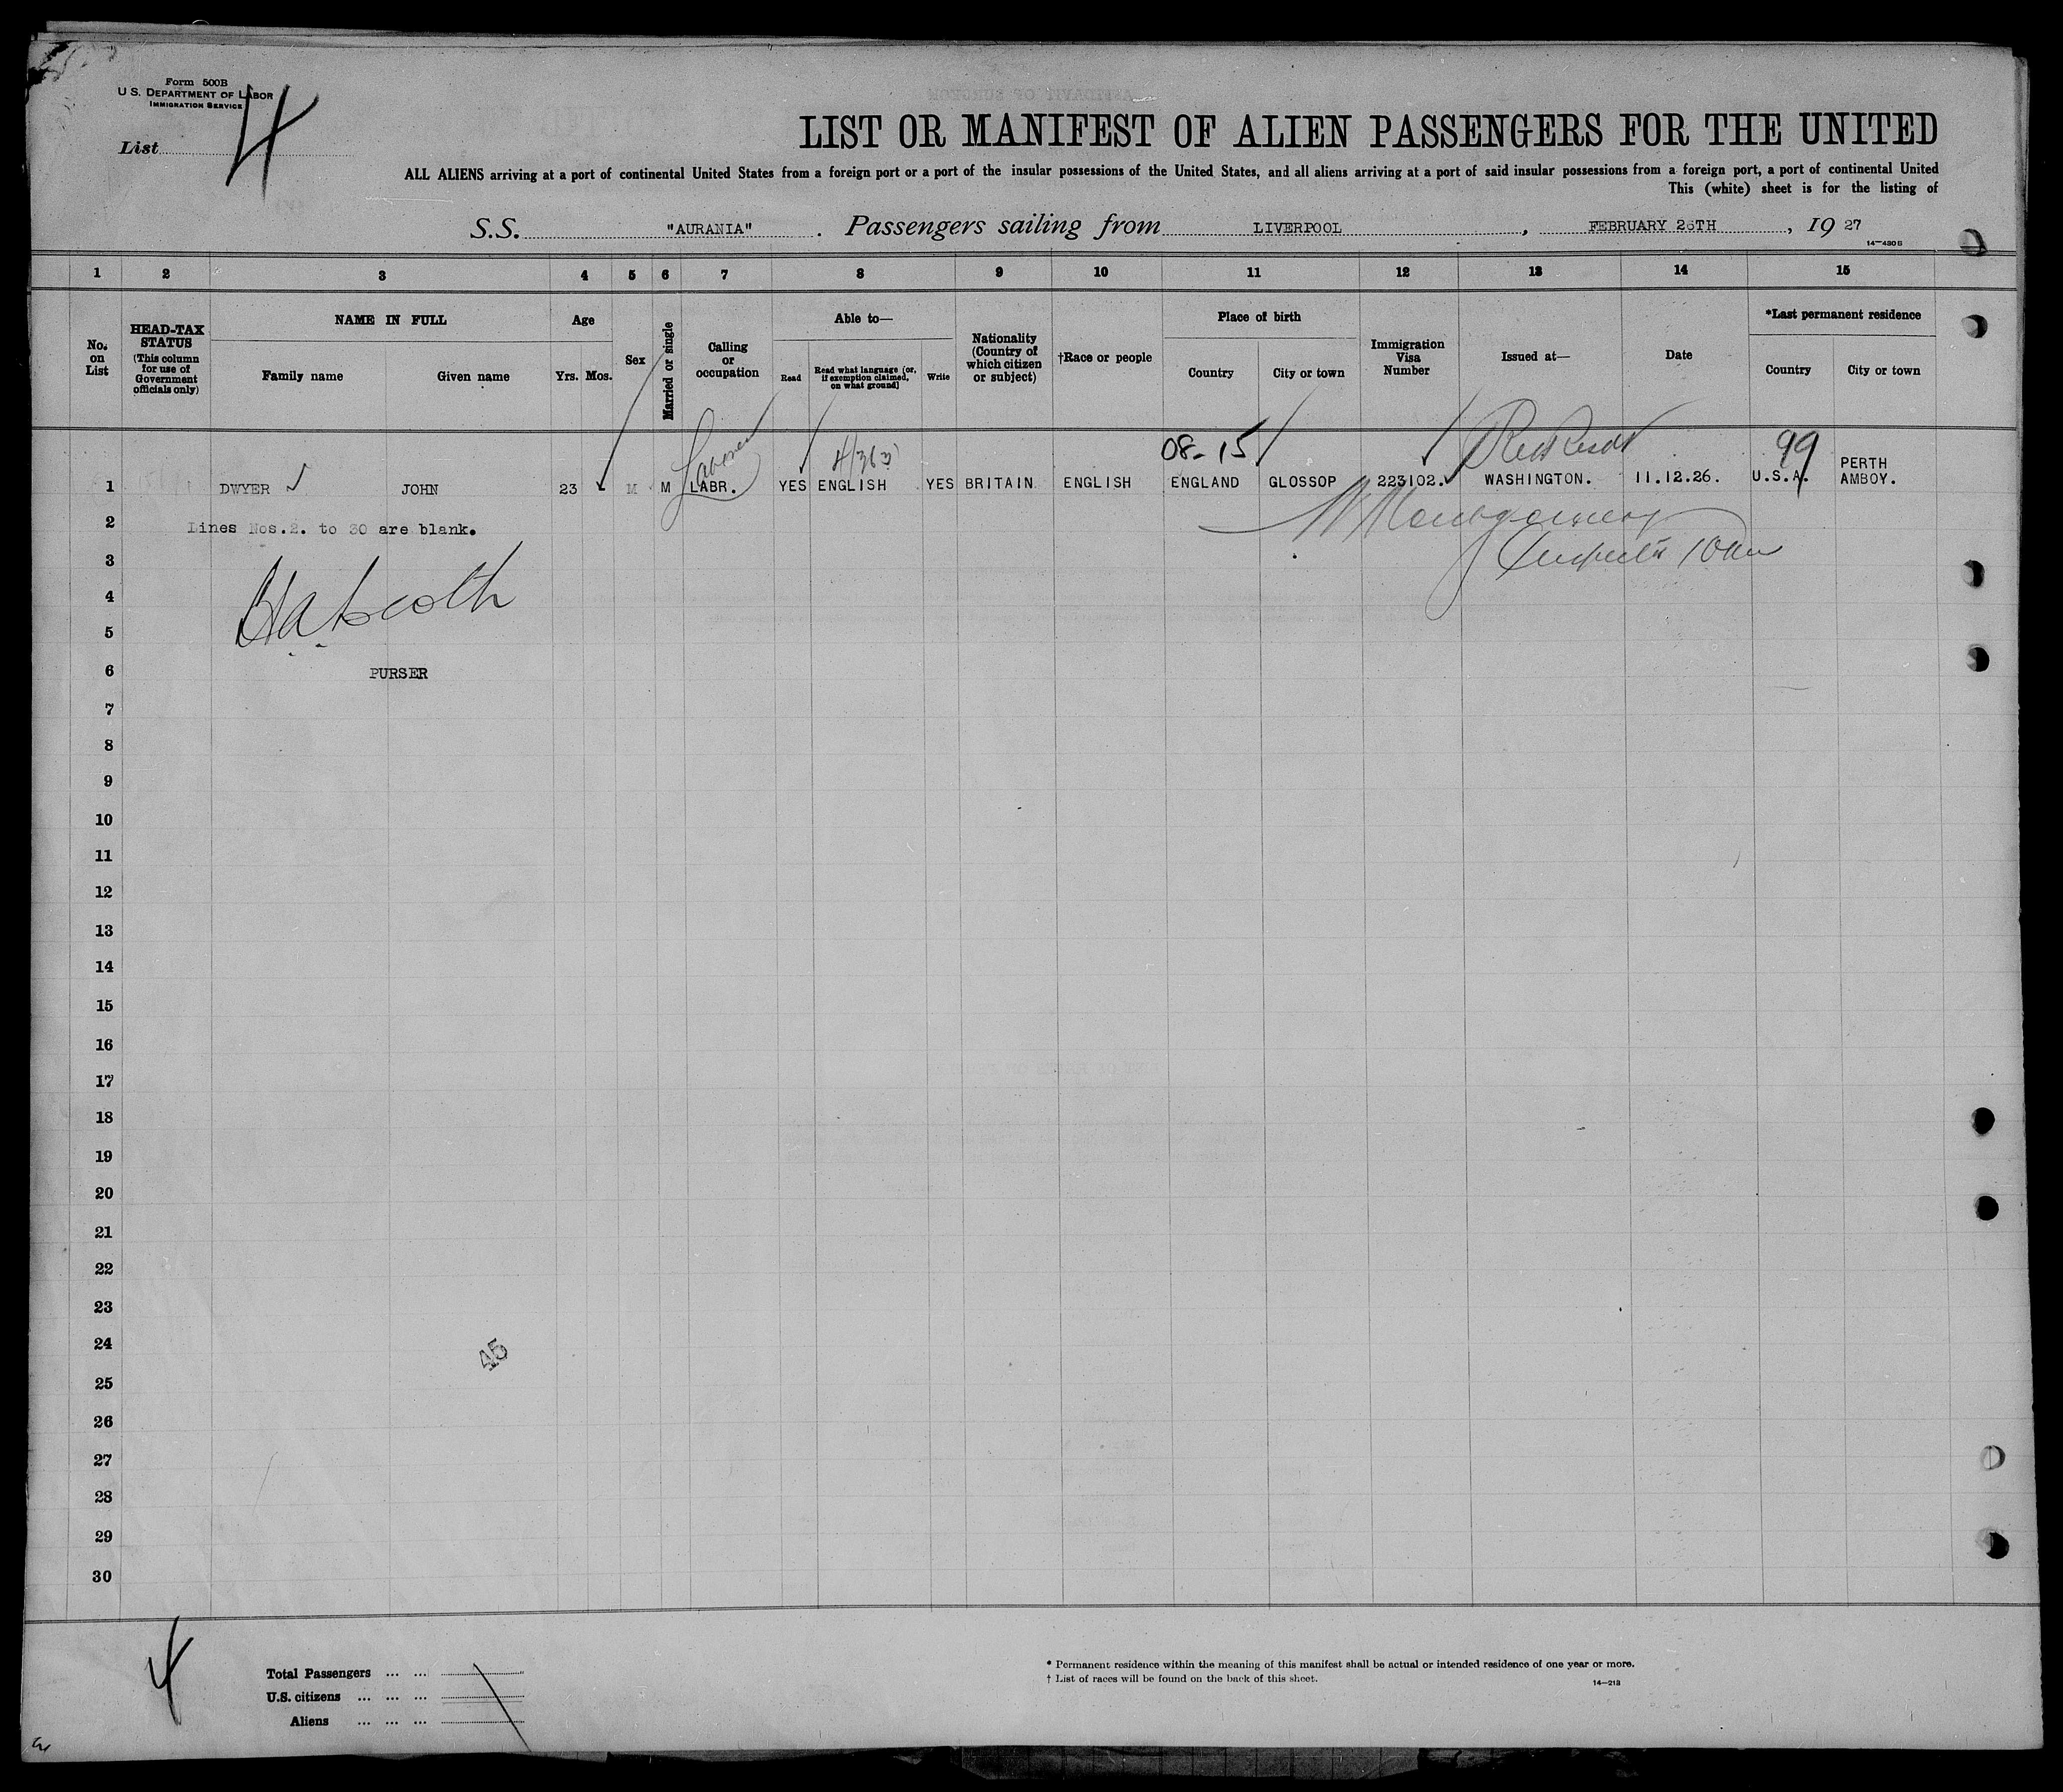 Form 500B
U. S. DEPARTMENT OF LABOR
IMMIGRATION SERVICE
List 4
LIST OR MANIFEST OF ALIEN PASSENGERS FOR THE UNITED
ALL ALIENS arriving at a port of continental United States from a foreign port or a port of the insular possessions of the United States, and all aliens arriving at a port of said insular possessions from a foreign port, a port of continental United
This (white) sheet is for the listing of
S.S. "AURANIA". Passengers sailing from LIVERPOOL, FEBRUARY 26TH, 1927
14—430 B
1 2 3 4 5 6 7 8 9 10 11 12 13 14 15
No. on List
HEAD-TAX STATUS (This column for use of Government officials only)
NAME IN FULL
Family name Given name
Age
Yrs. Mos.
Sex
Married or single
Calling or occupation
Able to—
Read Read what language (or, if exemption claimed, on what ground) Write
Nationality (Country of which citizen or subject)
†Race or people
Place of birth
Country City or town
Immigration Visa Number
Issued at—
Date
*Last permanent residence
Country City or town
Laborer 08-15 99
1 DWYER JOHN 23 M M LABR. YES ENGLISH YES BRITAIN ENGLISH ENGLAND GLOSSOP 223102. WASHINGTON. 11.12.26. U.S.A. PERTH AMBOY.
2 Lines Nos.2. to 30 are blank.
Montgomery
3
4
5
6 PURSER
7
8
9
10
11
12
13
14
15
16
17
18
19
20
21
22
23
24 45
25
26
27
28
29
30
4
Total Passengers ... ...
U.S. citizens ... ... ...
Aliens ... ... ...
* Permanent residence within the meaning of this manifest shall be actual or intended residence of one year or more.
† List of races will be found on the back of this sheet.
14—213